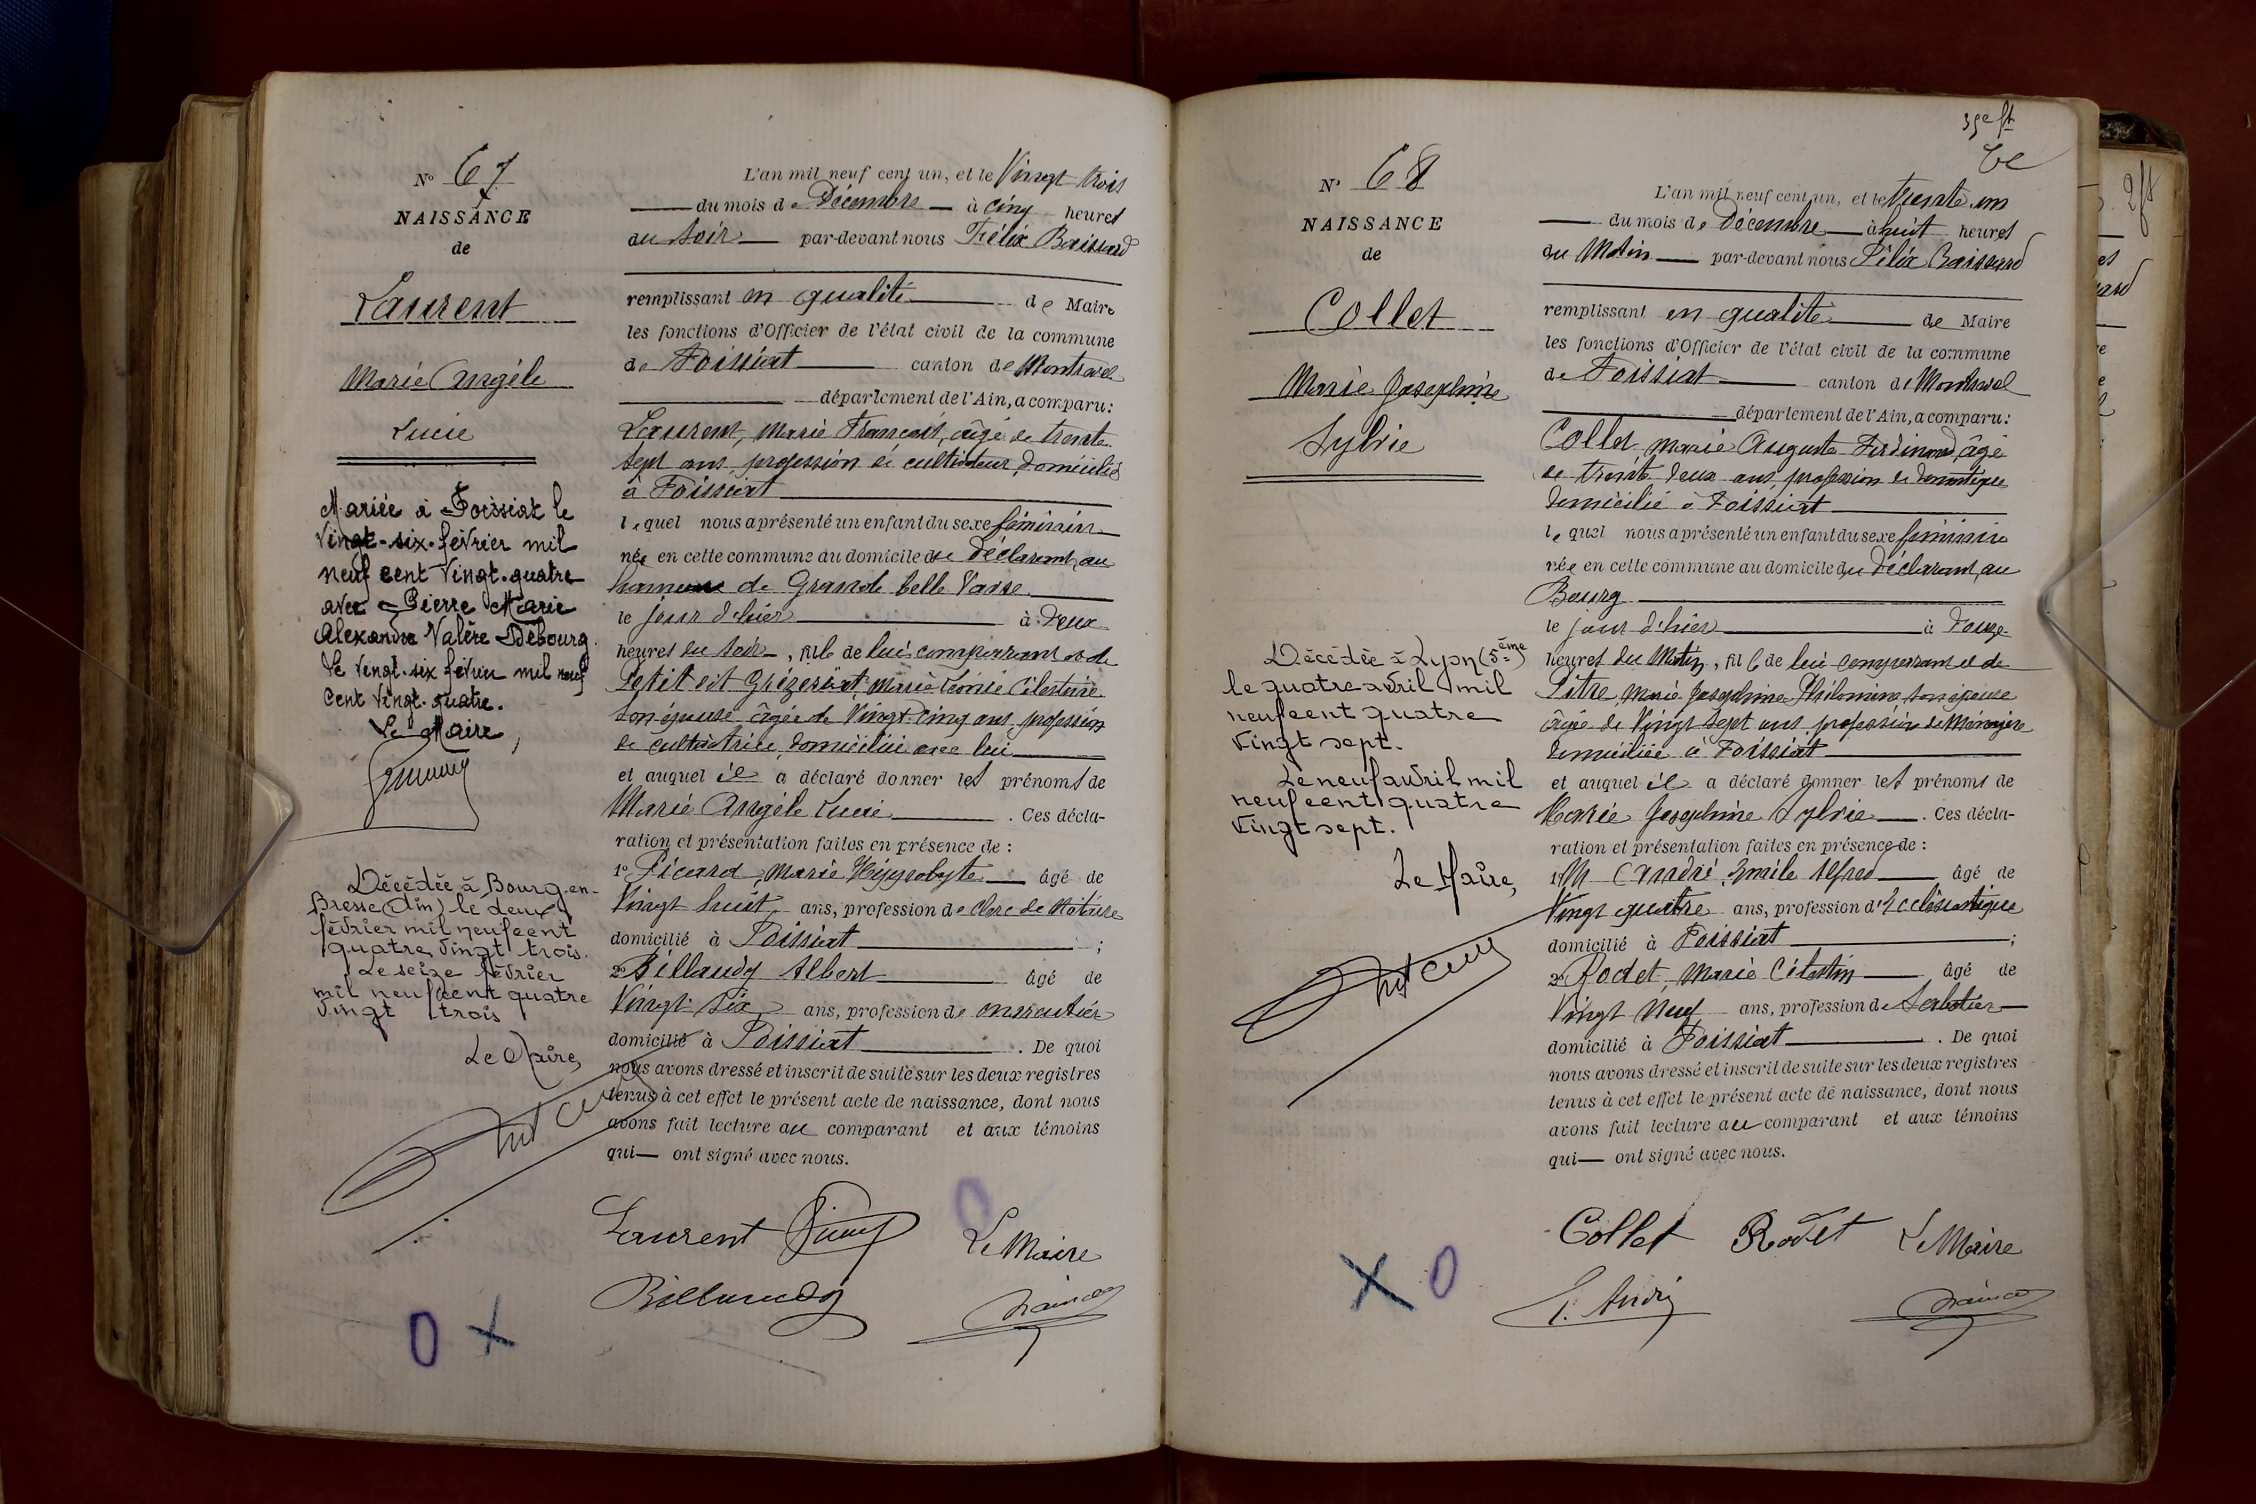 N° 67
NAISSANCE
de
Laurent
Marie Angèle
Lucie
Mariée à Foissiat le
vingt-six février mil
neuf cent vingt-quatre
avec Pierre Marie
Alexandre Valère Débourg.
Le vingt-six février mil neuf
cent vingt-quatre.
Le Maire,
Décédée à Bourg-en-
Bresse (Ain) le deux
février mil neuf cent
quatre vingt trois.
Le seize février
mil neuf cent quatre
vingt trois
Le Maire,
L'an mil neuf cent un, et le Vingt trois
du mois de Décembre à cinq heures
du soir par-devant nous Félix Baissard
remplissant en qualité de Maire
les fonctions d'Officier de l'état civil de la commune
de Foissiat canton de Montrevel
département de l'Ain, a comparu :
Laurent, Marie François, âgé de trente
sept ans, profession de cultivateur, domicilié
à Foissiat
lequel nous a présenté un enfant du sexe féminin
née en cette commune au domicile du déclarant, au
hameau de Grande Belle Vavre
le jour d'hier à deux
heures du soir, fille de lui comparant et de
Petit dit Grézeriat, Marie Célestine
son épouse, âgée de Vingt cinq ans, profession
de cultivatrice, domiciliée avec lui
et auquel il a déclaré donner les prénoms de
Marie Angèle Lucie. Ces décla-
ration et présentation faites en présence de :
1° Picard, Marie Hyppolyte âgé de
Vingt huit ans, profession de clerc de Notaire
domicilié à Foissiat ;
2° Billaudy Albert âgé de
Vingt six ans, profession de menuisier
domicilié à Foissiat. De quoi
nous avons dressé et inscrit de suite sur les deux registres
tenus à cet effet le présent acte de naissance, dont nous
avons fait lecture au comparant et aux témoins
qui ont signé avec nous.
Laurent Le Maire
Billaudy
35e ft
N° 68
NAISSANCE
de
Collet
Marie Joséphine
Sylvie
Décédée à Lyon (5ème)
le quatre avril mil
neuf cent quatre
vingt sept.
Le neuf avril mil
neuf cent quatre
vingt sept.
Le Maire,
L'an mil neuf cent un, et le trente un
du mois de Décembre à huit heures
du Matin par-devant nous Félix Baissard
remplissant en qualité de Maire
les fonctions d'Officier de l'état civil de la commune
de Foissiat canton de Montrevel
département de l'Ain, a comparu :
Collet, Marie Auguste Ferdinand, âgé
de trente deux ans, profession de domestique
domicilié à Foissiat
lequel nous a présenté un enfant du sexe féminin
née en cette commune au domicile du déclarant, au
Bourg
le jour d'hier à douze
heures du Matin, fille de lui comparant et de
Pitre, Marie Joséphine Philomène, son épouse
âgée de Vingt sept ans, profession de Ménagère
domiciliée à Foissiat
et auquel il a déclaré donner les prénoms de
Marie Joséphine Sylvie. Ces décla-
ration et présentation faites en présence de :
1° M André, Emile Alfred âgé de
Vingt quatre ans, profession d'Ecclésiastique
domicilié à Foissiat ;
2° Rodet, Marie Célestin âgé de
Vingt Neuf ans, profession de Sabotier
domicilié à Foissiat. De quoi
nous avons dressé et inscrit de suite sur les deux registres
tenus à cet effet le présent acte de naissance, dont nous
avons fait lecture au comparant et aux témoins
qui ont signé avec nous.
Collet Rodet Le Maire
E. André